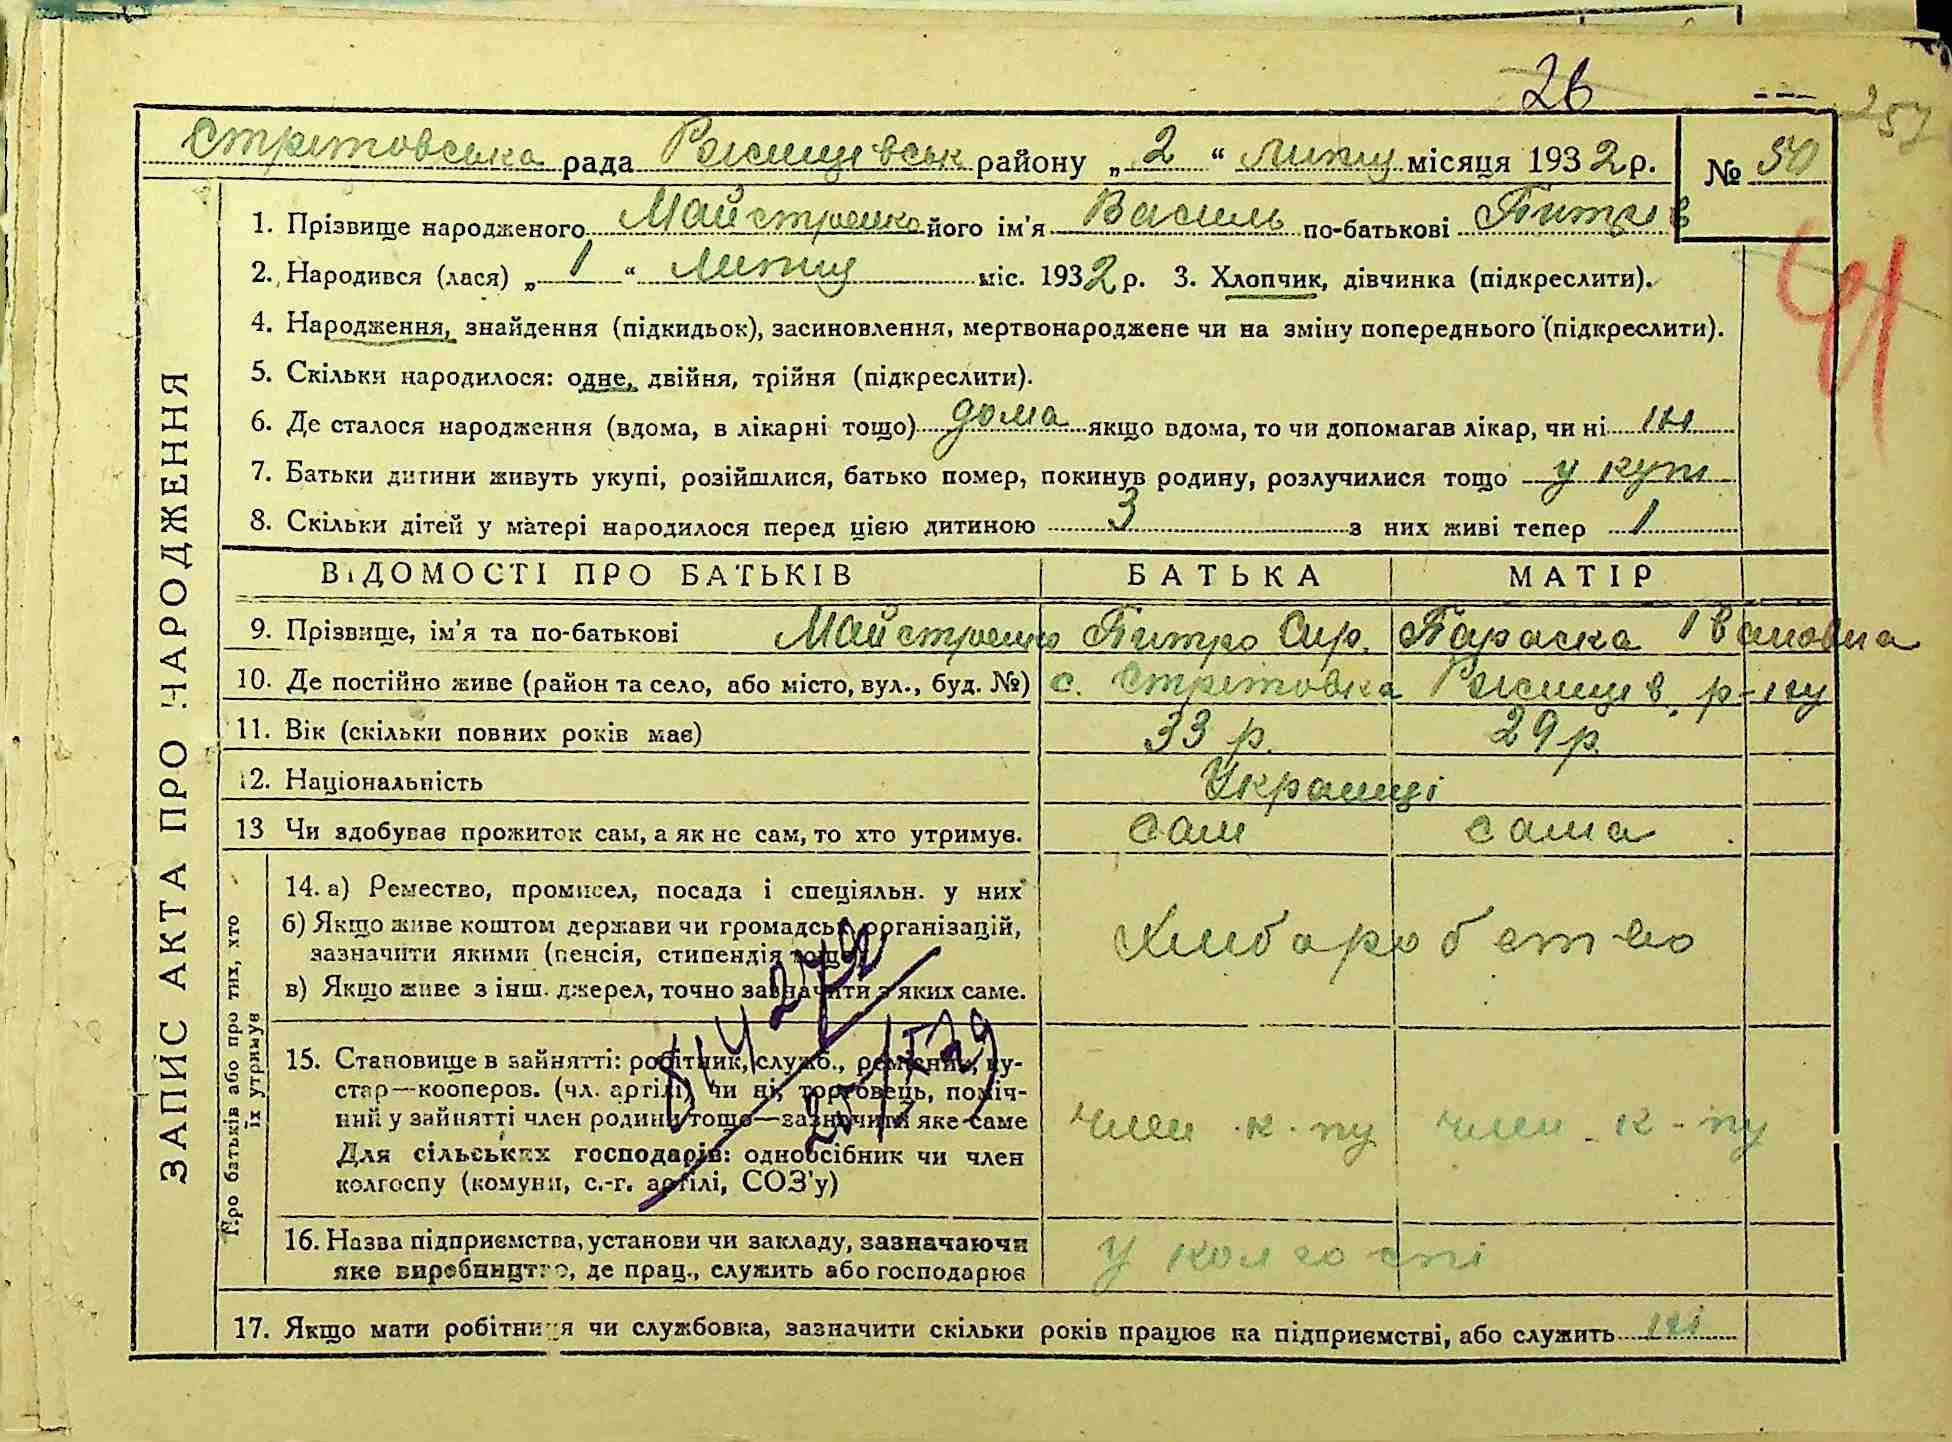 26
257
Стрітовська рада Ржищевськ району „2“ лютну місяця 1932 р. № 50
1. Прізвище народженого Майстренко його ім'я Василь по-батькові Питрів
2. Народився (лася) „1“ лютну міс. 1932 р. 3. Хлопчик, дівчинка (підкреслити).
4. Народження, знайдення (підкидьок), засиновлення, мертвонароджене чи на зміну попереднього (підкреслити).
5. Скільки народилося: одне, двійня, трійня (підкреслити).
6. Де сталося народження (вдома, в лікарні тощо) дома якщо вдома, то чи допомагав лікар, чи ні ні
7. Батьки дитини живуть укупі, розійшлися, батько помер, покинув родину, розлучилися тощо у купі
8. Скільки дітей у матері народилося перед цією дитиною 3 з них живі тепер 1
ЗАПИС АКТА ПРО НАРОДЖЕННЯ
ВІДОМОСТІ ПРО БАТЬКІВ БАТЬКА МАТІР
9. Прізвище, ім'я та по-батькові Майстренко Питро Сир. Параска Івановна
10. Де постійно живе (район та село, або місто, вул., буд. №) с. Стрітовка Ржищев. р-ну
11. Вік (скільки повних років має) 33 р. 29 р.
12. Національність Українці
13 Чи здобуває прожиток сам, а як не сам, то хто утримує. сам сама
Про батьків або про тих, хто їх утримує
14. а) Ремество, промисел, посада і спеціяльн. у них
б) Якщо живе коштом держави чи громадськ. організацій,
зазначити якими (пенсія, стипендія тощо)
в) Якщо живе з інш. джерел, точно зазначити з яких саме.
Хлібаробство
15. Становище в зайнятті: робітник, служб., ремесник, ку-
стар—кооперов. (чл. артілі) чи ні, торговець, поміч-
ний у зайнятті член родини тощо—зазначити яке саме
Для сільських господарів: одноосібник чи член
колгоспу (комуни, с.-г. артілі, СОЗ'у)
член к-пу член к-пу
16. Назва підприємства, установи чи закладу, зазначаючи
яке виробництво, де прац., служить або господарює
у колгоспі
17. Якщо мати робітниця чи службовка, зазначити скільки років працює на підприємстві, або служить ні